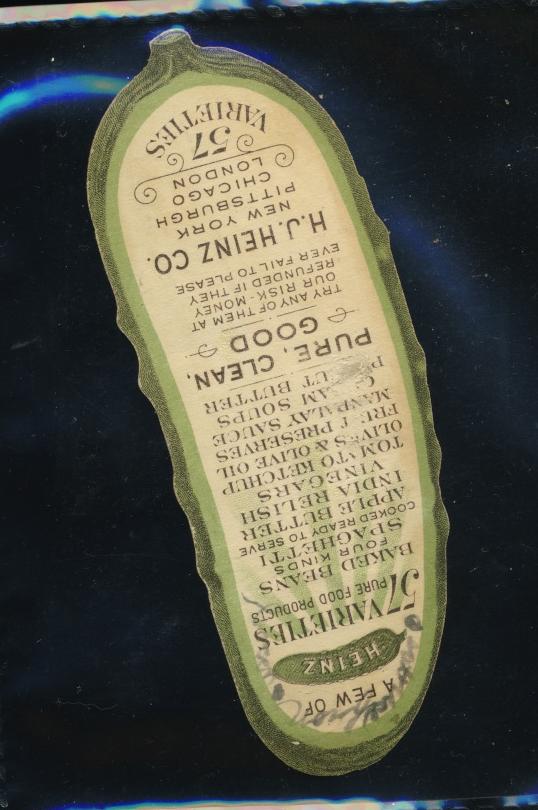 A FEW OF
HEINZ
57 VARIETIES
PURE FOOD PRODUCTS
BAKED BEANS
FOUR KINDS
SPAGHETTI
COOKED READY TO SERVE
APPLE BUTTER
INDIA RELISH
VINEGARS
TOMATO KETCHUP
OLIVES & OLIVE OIL
FRUIT PRESERVES
MANDALAY SAUCE
CREAM SOUPS
PEANUT BUTTER
PURE, CLEAN,
GOOD
TRY ANY OF THEM AT
OUR RISK-MONEY
REFUNDED IF THEY
EVER FAIL TO PLEASE
H.J. HEINZ CO.
NEW YORK
PITTSBURGH
CHICAGO
LONDON
57
VARIETIES